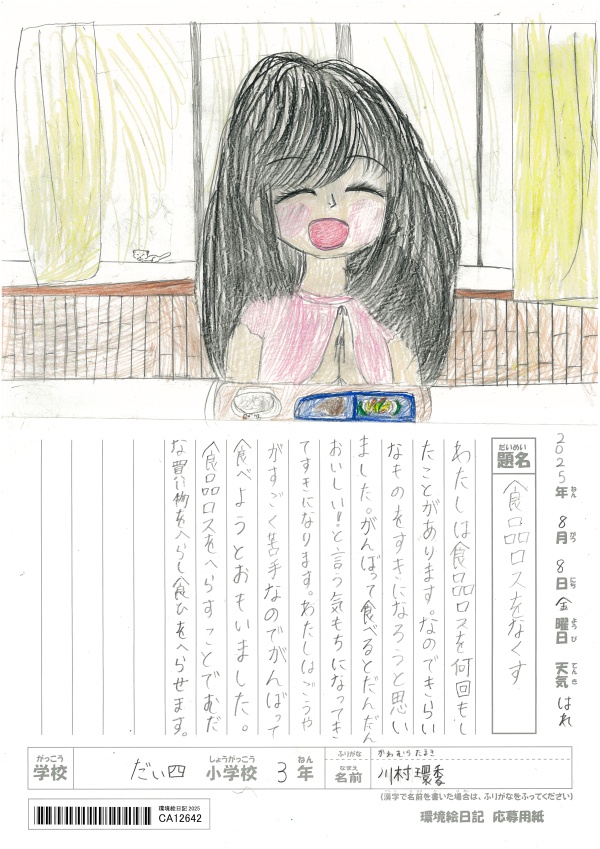 2025年ねん 8月がつ 8日にち 金曜日ようび 天気てんき はれ
題名だいめい 食品ロスをなくす
わたしは食品ロスを何回もし
たことがあります。なのできらい
なものをすきになろうと思い
ました。がんばって食べるとだんだん
おいしい!!と言う気もちになってき
てすきになります。わたしはごうや
がすごく苦手なのでがんばって
食べようとおもいました。
食品ロスをへらすことでむだ
な買い物をへらし食ひをへらせます。
がっこう
学校 だい四 小学校しょうがっこう 3年ねん
ふりがな かわむらたまき
名前なまえ 川村環季
(漢字で名前を書いた場合は、ふりがなをふってください)
環境絵日記 2025
CA12642
環境絵日記 応募用紙